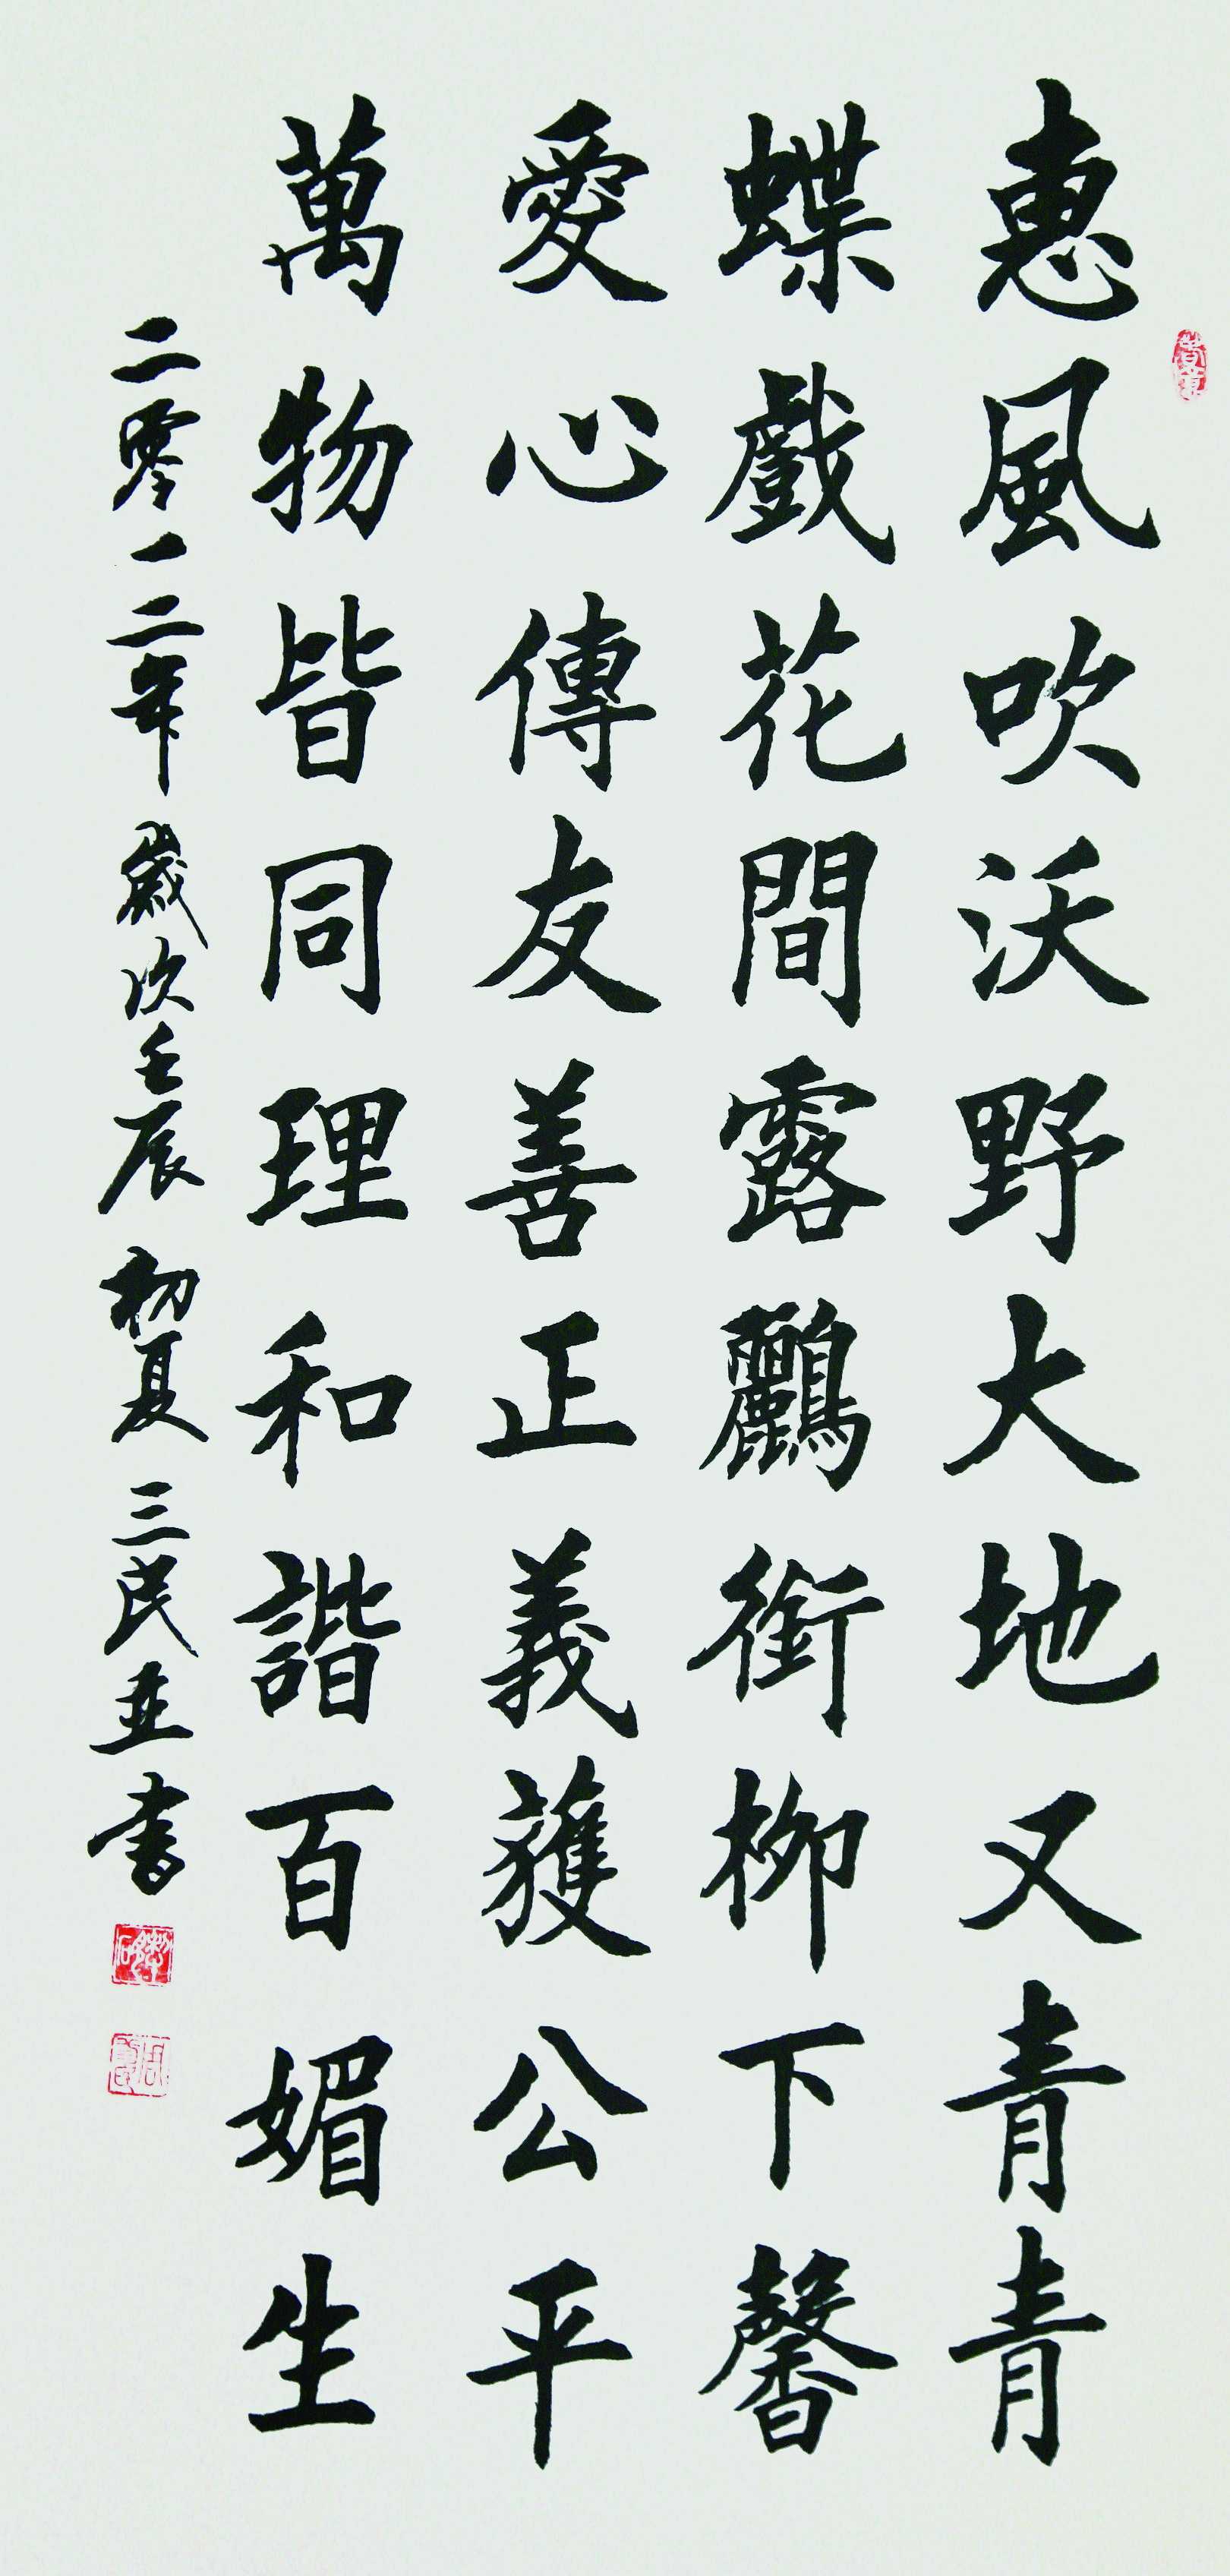 惠風吹沃野大地又青青
蝶戲花間露鸝銜柳下馨
愛心傳友善正義獲公平
萬物皆同理和諧百媚生
二零一二年歲次壬辰初夏三民並書